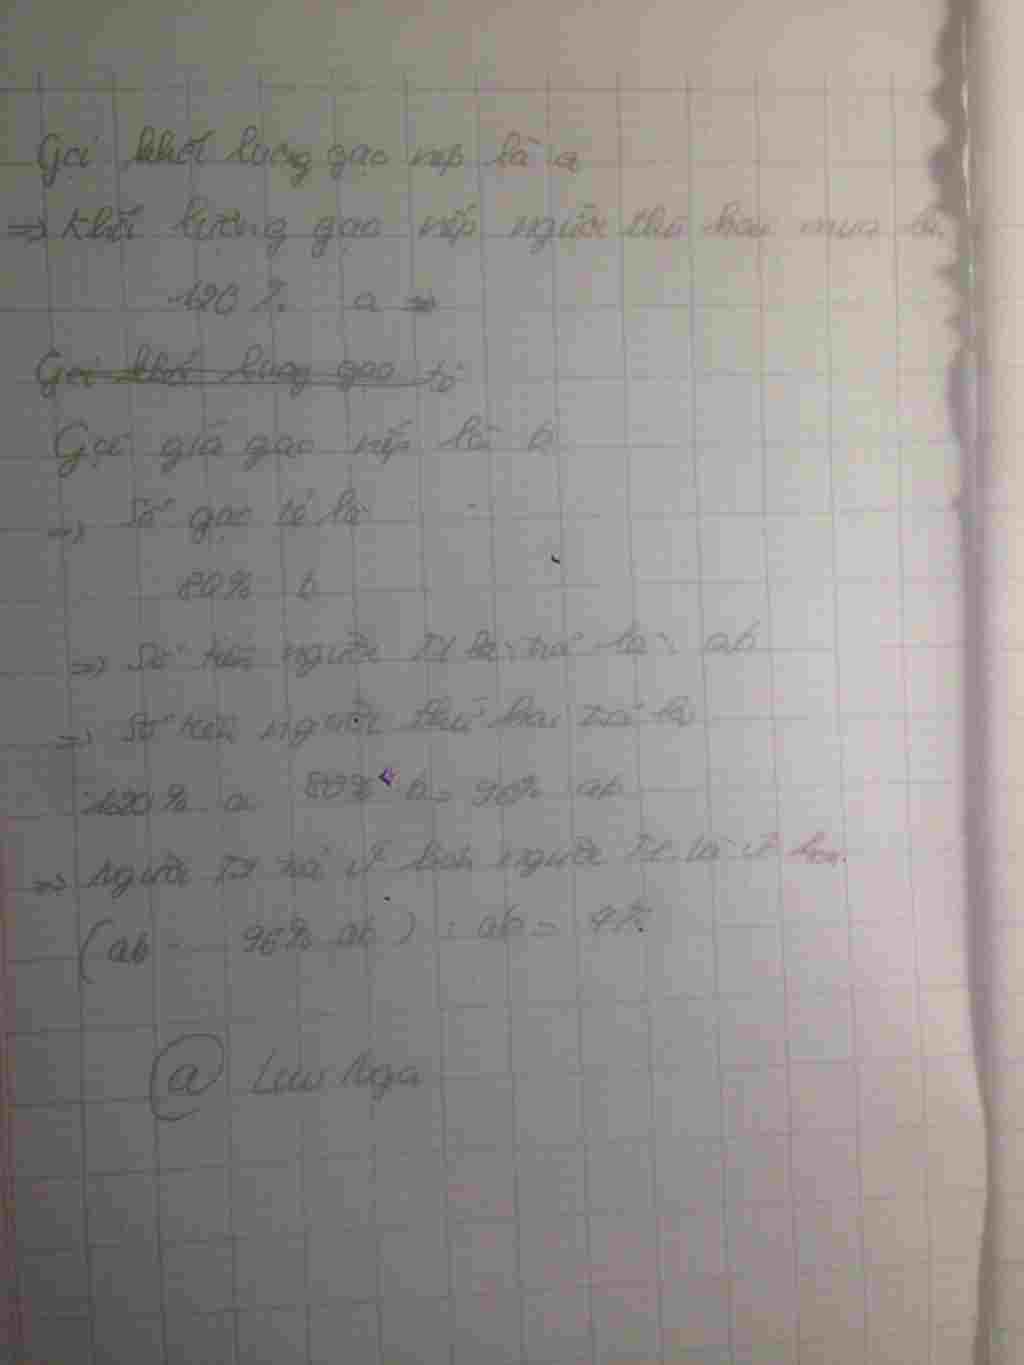 Gọi khối lượng gạo nếp là a
=> Khối lượng gạo nếp người thứ hai mua là
120% a =>
Gọi khối lượng gạo tẻ
Gọi giá gạo nếp là b
=> Số gạo tẻ là
80% b
=> Số tiền người T1 trả là: ab
=> Số tiền người thứ hai trả là
120% a 80% b = 96% ab
=> Người T2 trả ít hơn người T1 là
(ab - 96% ab) : ab = 4%
@ Lưu Nga